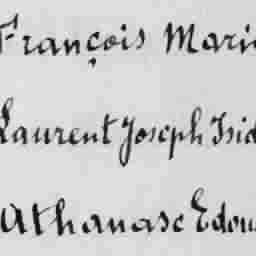 François Mari
Laurent Joseph Isid
Athanase Edou